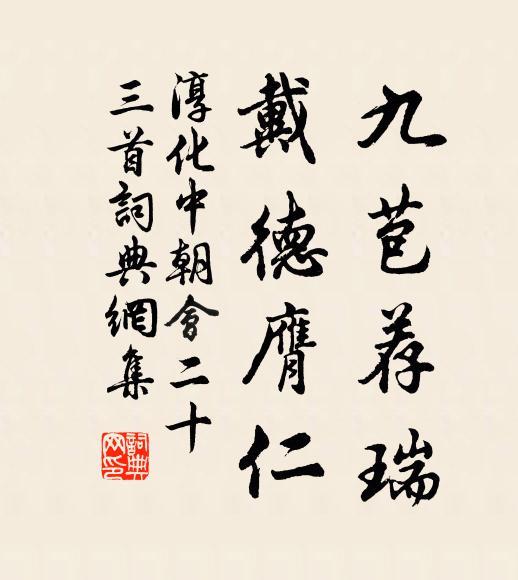 九苞荐瑞
戴德膺仁
淳化中朝會二十
三首詞典網集
詞典网印